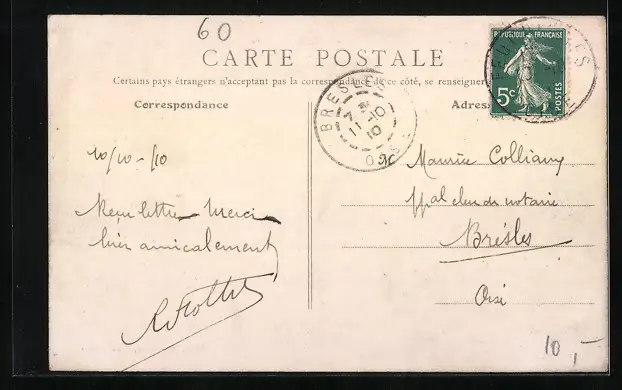 60
CARTE POSTALE
Certains pays étrangers n'acceptant pas la correspondance de ce côté, se renseigner
Correspondance
Adres
REPUBLIQUE FRANÇAISE
5c
POSTES
BRESLES
7
11-10
10
10/10-10
Maurice
Reçu lettre Merci
pal clerc de notaire
bien amicalement
Bresles
Oise
10,-